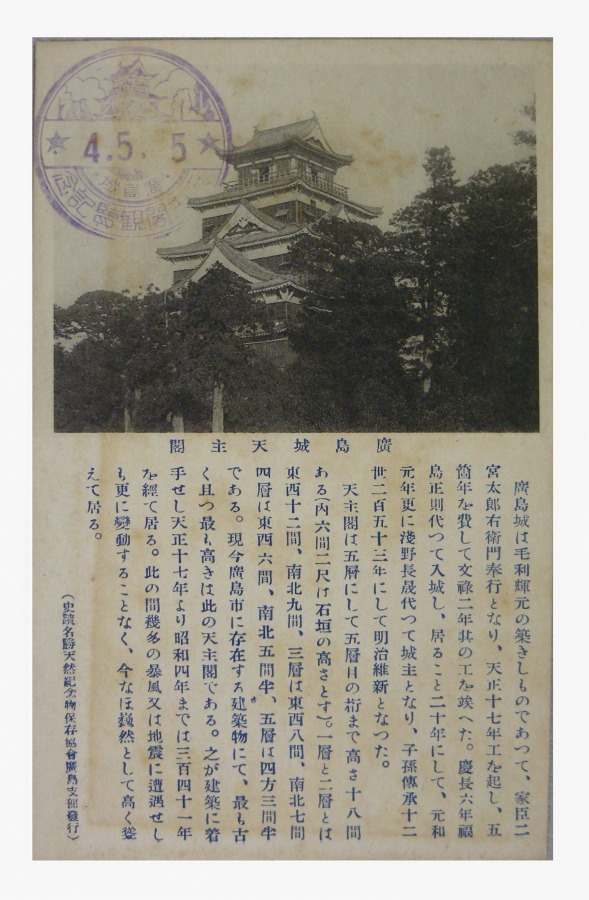 4.5.5
廣島城
閣観臨記念
廣島城天主閣
廣島城は毛利輝元の築きしものであつて、家臣二
宮太郎右衛門奉行となり、天正十七年工を起し、五
箇年を費して文祿二年其の工を竣へた。慶長六年福
島正則代つて入城し、居ること二十年にして、元和
元年更に淺野長晟代つて城主となり、子孫傳承十二
世二百五十三年にして明治維新となつた。
天主閣は五層にして五層目の桁まで高さ十八間
ある(内六間二尺は石垣の高さとす)。一層と二層とは
東西十二間、南北九間、三層は東西八間、南北七間
四層は東西六間、南北五間半、五層は四方三間半
である。現今廣島市に存在する建築物にて、最も古
く且つ最も高きは此の天主閣である。之が建築に着
手せし天正十七年より昭和四年までは三百四十一年
を經て居る。此の間幾多の暴風又は地震に遭遇せし
も更に變動することなく、今なほ巍然として高く聳
えて居る。
(史蹟名勝天然紀念物保存協會廣島支部發行)